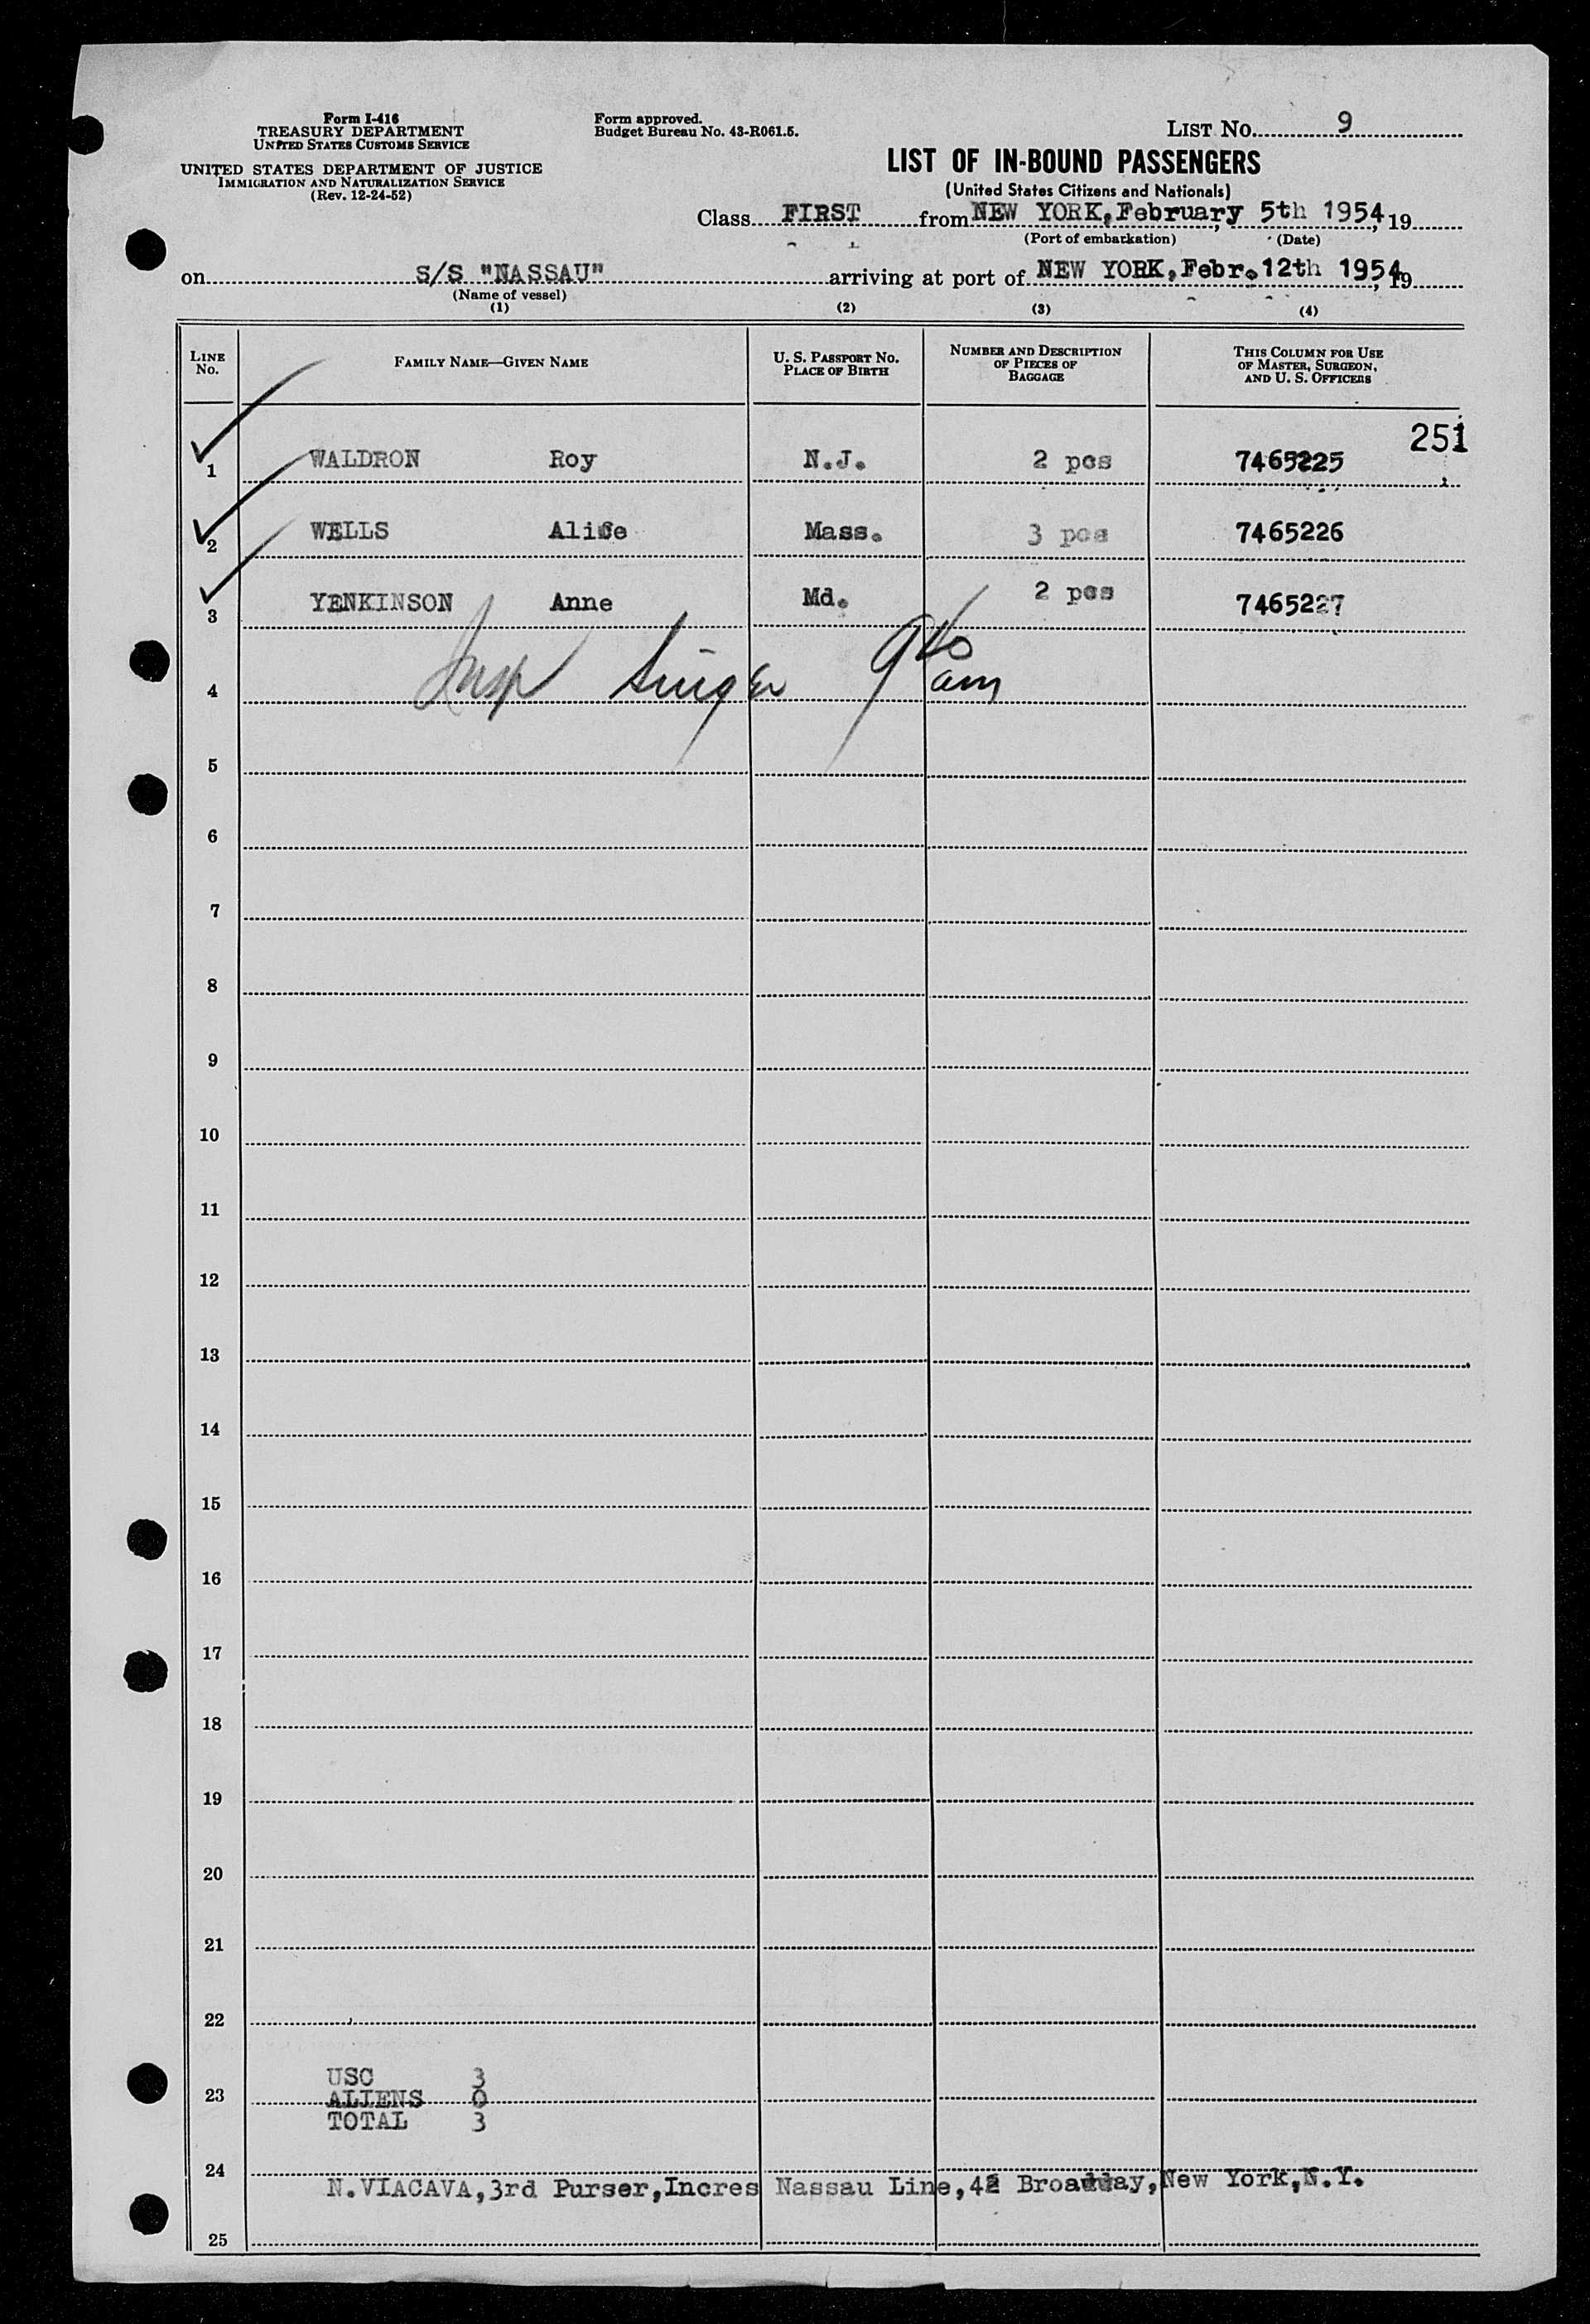 Form I-416
TREASURY DEPARTMENT
UNITED STATES CUSTOMS SERVICE
UNITED STATES DEPARTMENT OF JUSTICE
IMMIGRATION AND NATURALIZATION SERVICE
(Rev. 12-24-52)
Form approved.
Budget Bureau No. 43-R061.5.
LIST NO. 9
LIST OF IN-BOUND PASSENGERS
(United States Citizens and Nationals)
Class FIRST from NEW YORK, February 5th 1954, 19
(Port of embarkation) (Date)
on S/S "NASSAU" arriving at port of NEW YORK, Febr. 12th 1954, 19
(Name of vessel)
(1) (2) (3) (4)
LINE NO. FAMILY NAME—GIVEN NAME U. S. PASSPORT NO. PLACE OF BIRTH NUMBER AND DESCRIPTION OF PIECES OF BAGGAGE THIS COLUMN FOR USE OF MASTER, SURGEON, AND U. S. OFFICERS
251
1 WALDRON Roy N.J. 2 pcs 7465225
2 WELLS Alice Mass. 3 pcs 7465226
3 YENKINSON Anne Md. 2 pcs 7465227
Insp Singer 940 am
4
5
6
7
8
9
10
11
12
13
14
15
16
17
18
19
20
21
22
USC 3
23 ALIENS 0
TOTAL 3
24
N.VIACAVA,3rd Purser,Incres Nassau Line,42 Broadway,New York,N.Y.
25